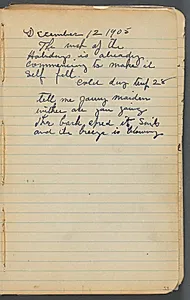 December 12 1905
The most of the
Holidays is already
Commencing to make it
Self felt
Cold day temp 28
tell me young maiden
wither are you going
the bark spred its Sails
and the breeze is blowing